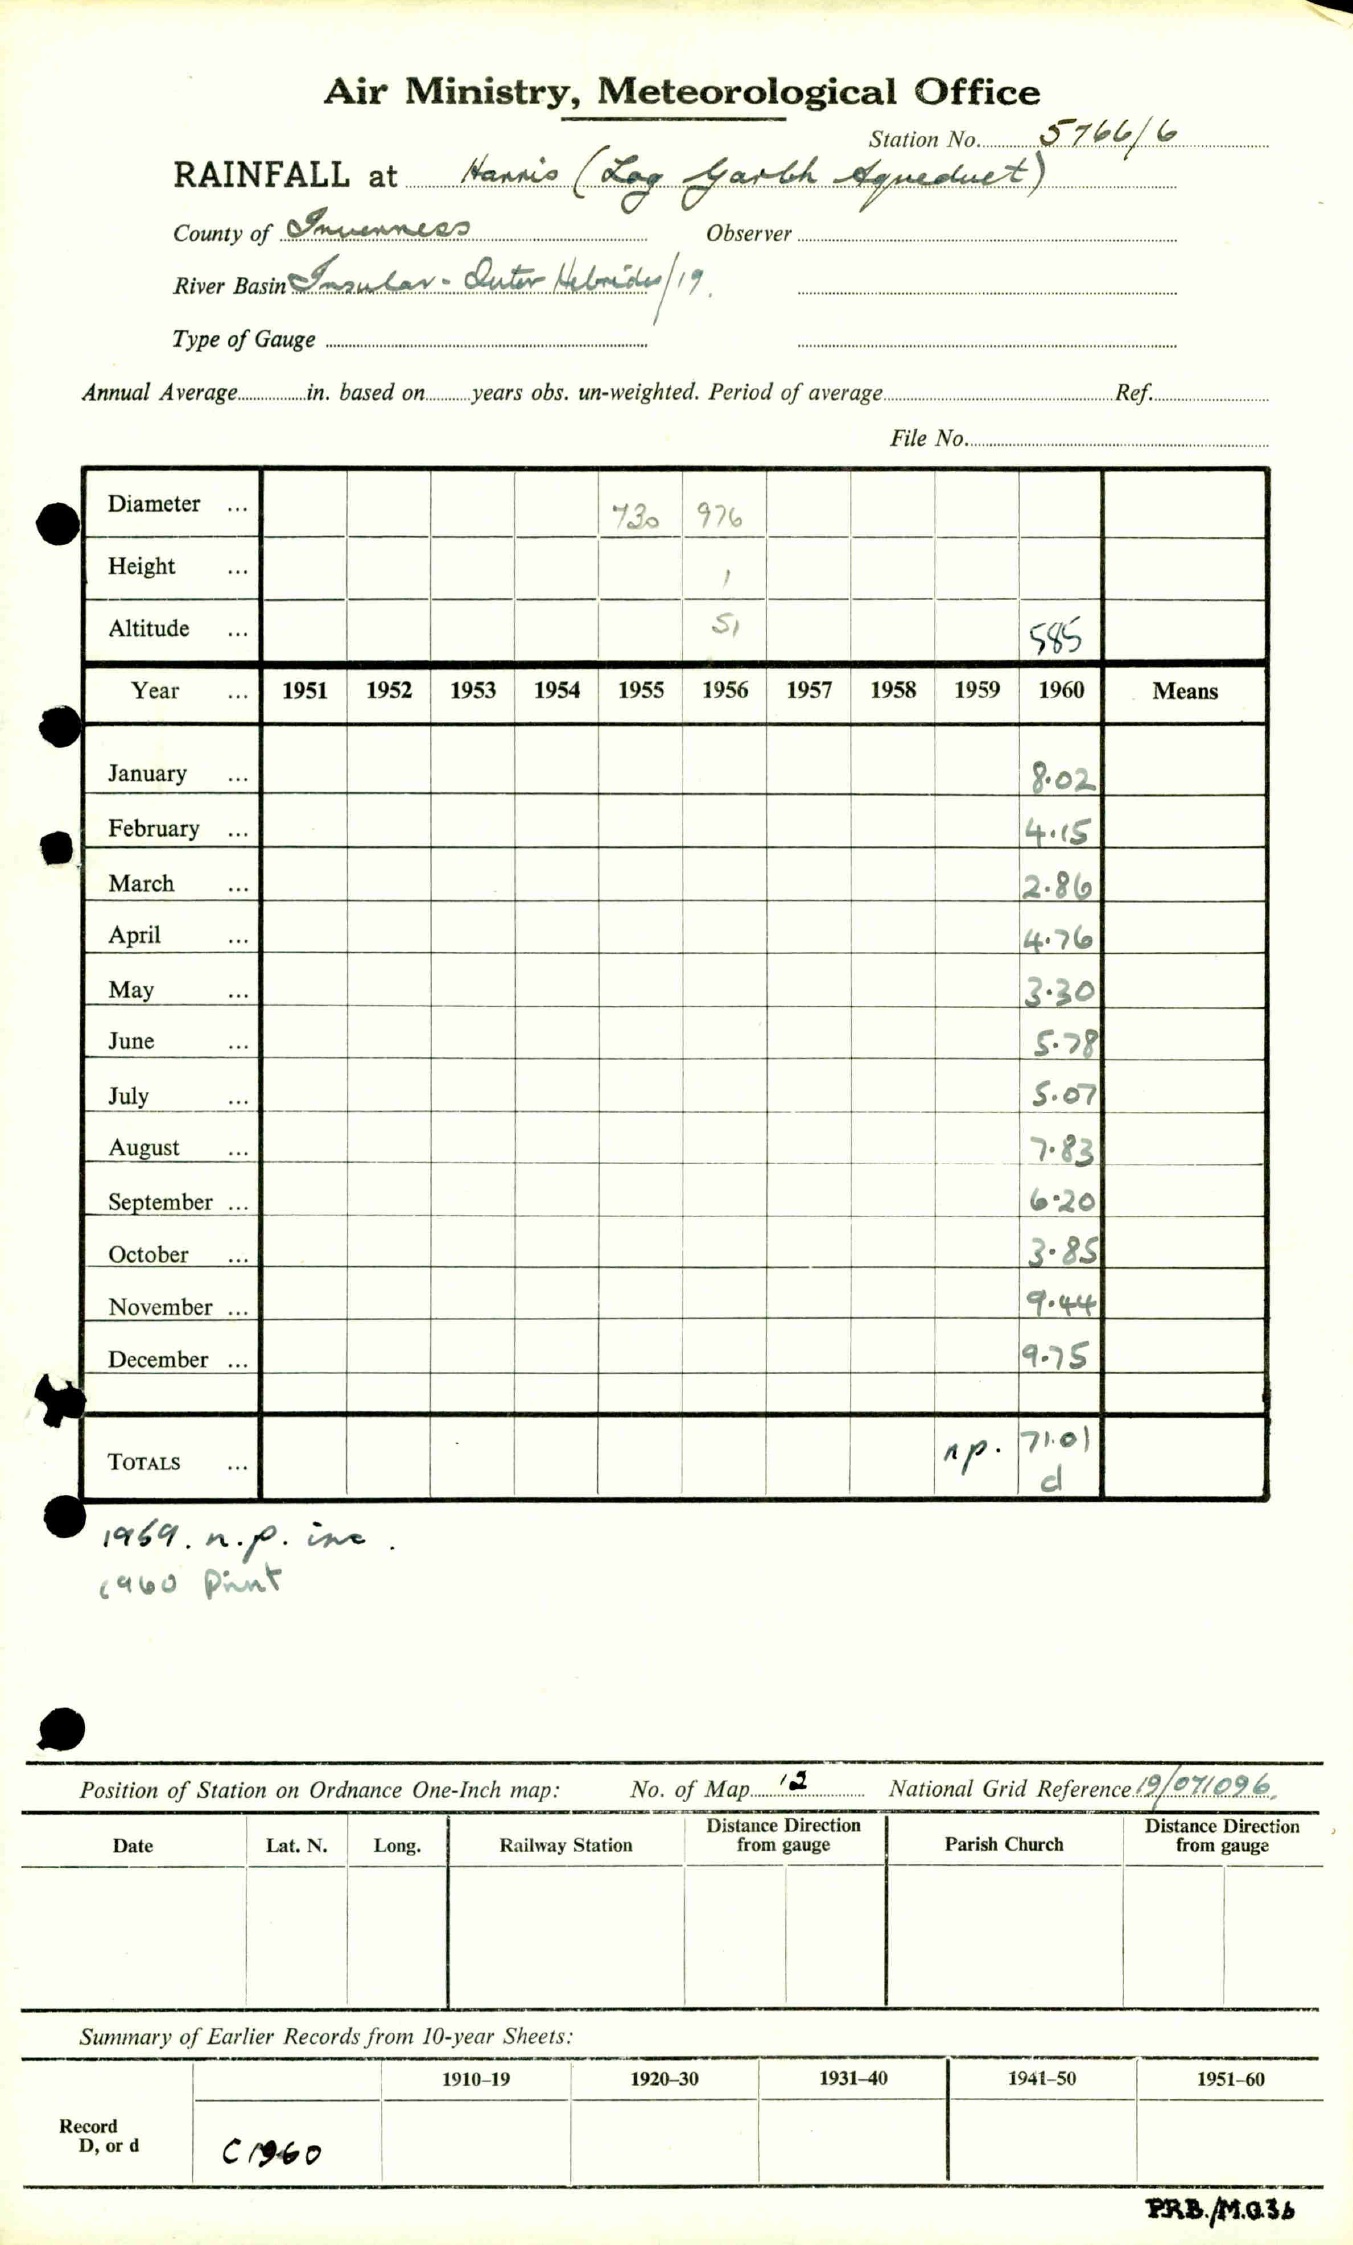 Air Ministry, Meteorological Office
Station No. 5766/6
RAINFALL at Harris (Lag Garbh Aqueduct)
County of Inverness Observer
River Basin Insular - Outer Hebrides/19.
Type of Gauge
Annual Average in. based on years obs. un-weighted. Period of average Ref.
File No.
Diameter ... 730 976
Height ... 1
Altitude ... 51 585
Year ... 1951 1952 1953 1954 1955 1956 1957 1958 1959 1960 Means
January ... 8.02
February ... 4.15
March ... 2.86
April ... 4.76
May ... 3.30
June ... 5.78
July ... 5.07
August ... 7.83
September ... 6.20
October ... 3.85
November ... 9.44
December ... 9.75
TOTALS ... n.p. 71.01
d
1959. n.p. inc.
1960 Print
Position of Station on Ordnance One-Inch map: No. of Map 12 National Grid Reference 19/071096.
Date Lat. N. Long. Railway Station Distance Direction from gauge Parish Church Distance Direction from gauge
Summary of Earlier Records from 10-year Sheets:
1910–19 1920–30 1931–40 1941–50 1951–60
Record
D, or d C1960
P.R.B./M.O.36